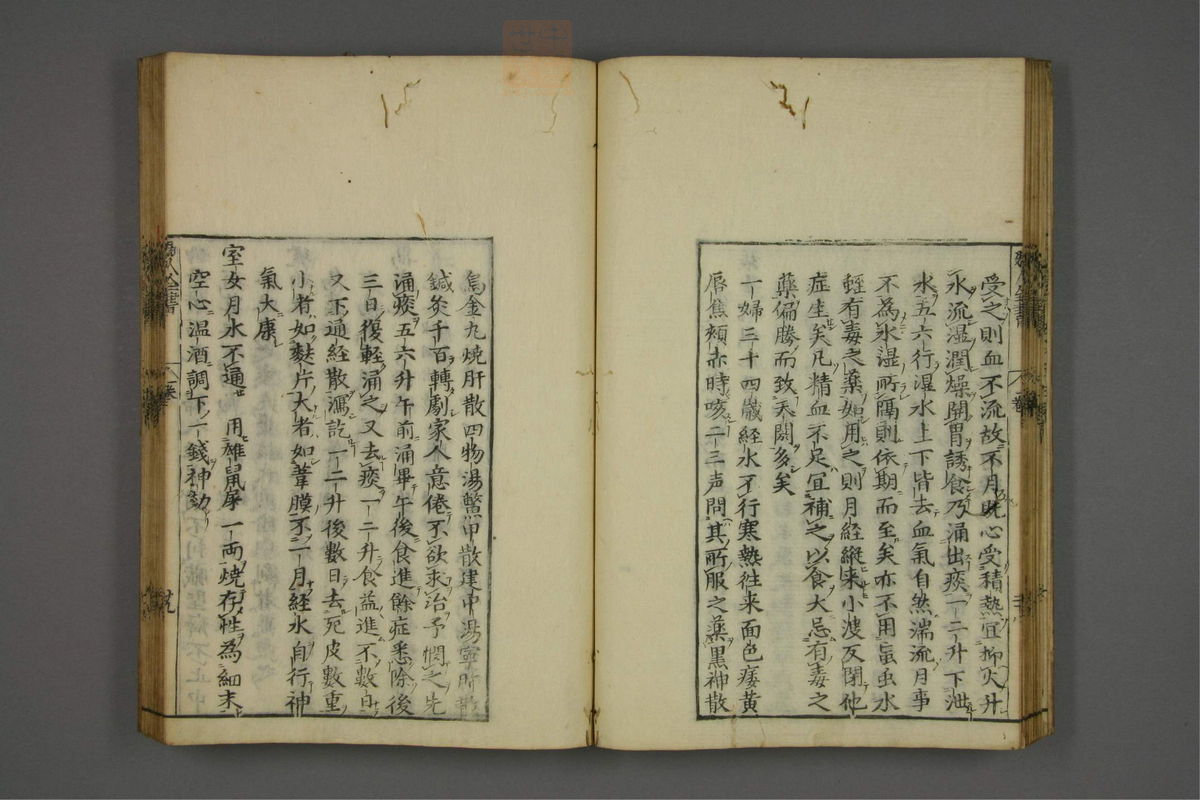 受之則血不流故不月既心受積熱宜抑火升
水流湿潤燥開胃誘食乃涌出痰一二升下泄
水五六行湿水上下皆去血氣自然湍流月事
不為水湿所隔則依期而至矣亦不用虻虫水
蛭有毒之薬如用之則月経縦来小溲反閉他
症生矣凡精血不足宜補之以食大忌有毒之
薬偏勝而致夭閼多矣
一婦三十四歳経水不行寒熱往来面色痿黄
唇焦頰赤時咳二三声問其所服之薬黒神散
烏金丸焼肝散四物湯鱉甲散建中湯寧肺散
鍼灸千百轉劇家人意倦不欲求治予憫之先
涌痰五六升午前涌畢午後食進餘症悉除後
三日復軽涌之又去痰一二升食益進不数日
又下通経散瀉訖一二升後数日去死皮數重
小者如麩片大者如葦膜不一月経水自行神
氣大康
室女月水不通 用雄鼠屎一両焼存性為細末
空心温酒調下一錢神効
婦人全書
卷